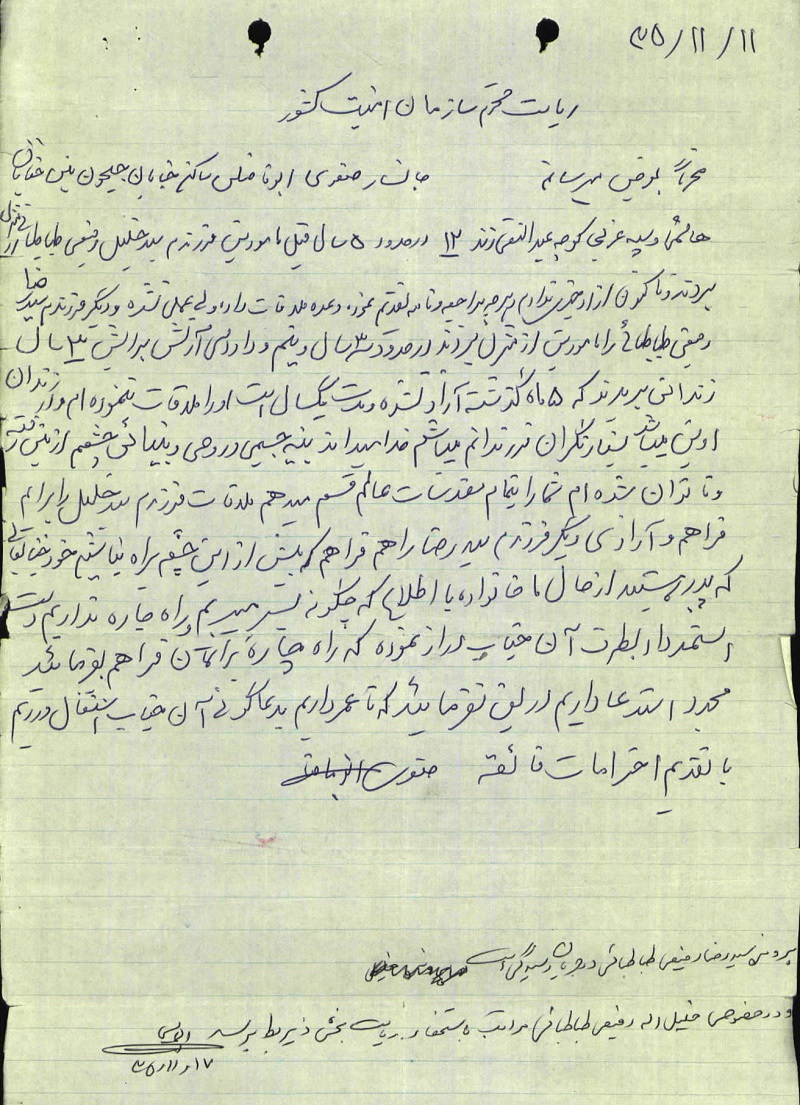 ۳۵/۱۱/۱۱
ریاست محترم سازمان امنیت کشور
محترماً بعرض میرساند جانثار صفوی ابوقاضلی ساکن خیابان جیحون بین خیابان
هاشمی و سپه غربی کوچه عبدالتقی زند ۱۲ درحدود ۵ سال قبل مامورین فرزندم سید خلیل رفیعی طباطبائی
بردند و تاکنون از او خبری ندارم هر چه مراجعه و نامه تقدیم نموده وعده ملاقات داده ولی عملی نشده و دیگر فرزندم سید رضا
رفیعی طباطبائی را مامورین از منزل بردند درحدود سه ۳ سال و نیم و دادرسی آرتش برایش ۳ سال
زندانی بریدند که ۵ ماه گذشته آزاد نشده و مدت یکسال است او را ملاقات ننموده‌ام و در زندان
اوین میباشد بسیار نگران فرزندانم میباشم خدا میداند بنیه جسمی و روحی و بینائی چشمم از بین رفته
و ناتوان شده‌ام شما را بتمام مقدسات عالم قسم میدهم ملاقات فرزندم سید خلیل را برایم
فراهم و آزادی دیگر فرزندم سید رضا را هم فراهم که بیش از این چشم براه نباشیم خود جنابعالی
که پدر هستید از حال ما خانواده با اطلاع که چگونه بسر میبریم و راه چاره نداریم دست
استمداد بطرف آن جناب دراز نموده که راه چاره برایمان فراهم بفرمائید
مجدد استدعا داریم دریغ نفرمائید که تا عمر داریم بدعاگوئی آن جناب اشتغال ورزیم
با تقدیم احترامات فائقه صفوی
پرونده سید رضا رفیعی طباطبائی در جریان رسیدگی است
و در خصوص خلیل اله رفیعی طباطبائی مراتب باستحضار ریاست بخش ذیربط برسد
۳۵/۱۱/۱۷